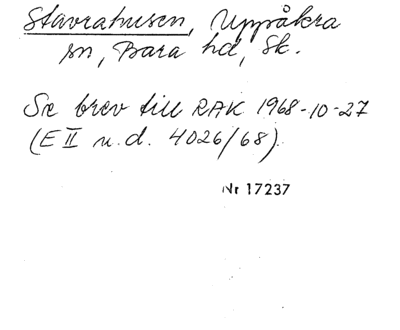 Stavrahusen, Uppåkra
sn, Bara hd, Sk.
Se brev till RAK 1968-10-27
(E II u.d. 4026/68).
Nr 17237